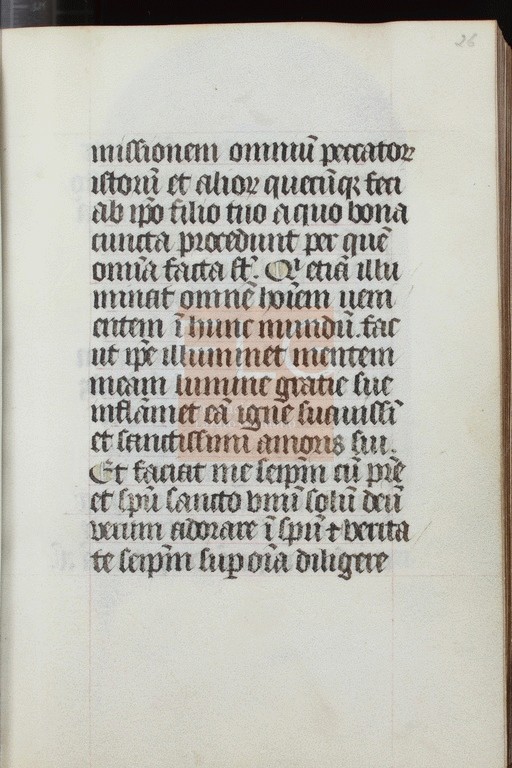 26
missionem omniū peccatoꝝ
istorū et alioꝝ quecūqꝫ feci
ab ip̄o filio tuo a quo bona
cuncta procedunt per quē
om̄ia facta st̄. Qi etiā illu
minat omnē hoīem ueni
entem ī hunc mundū. fac
ut ip̄e illuminet mentem
meam lumine gratie sue
inflāmet eā igne suauissī
et sanctissimi amoris sui.
Et faciat me seip̄m cū pr̄e
et sp̄u sancto vnū solū deū
verum adorare ī sp̄u ⁊ verita
te seip̄m suꝑ oīa diligere